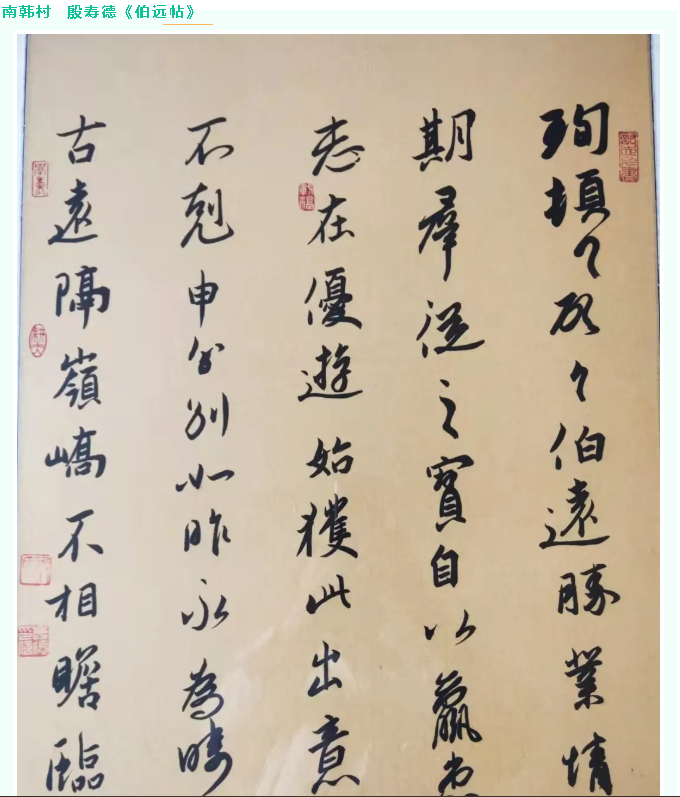 南韩村 殷寿德《伯远帖》
珣頓々首々伯遠勝業情
期羣從之寶自以羸患
志在優遊始獲此出意
不剋申分别如昨永為疇
古遠隔嶺嶠不相瞻臨